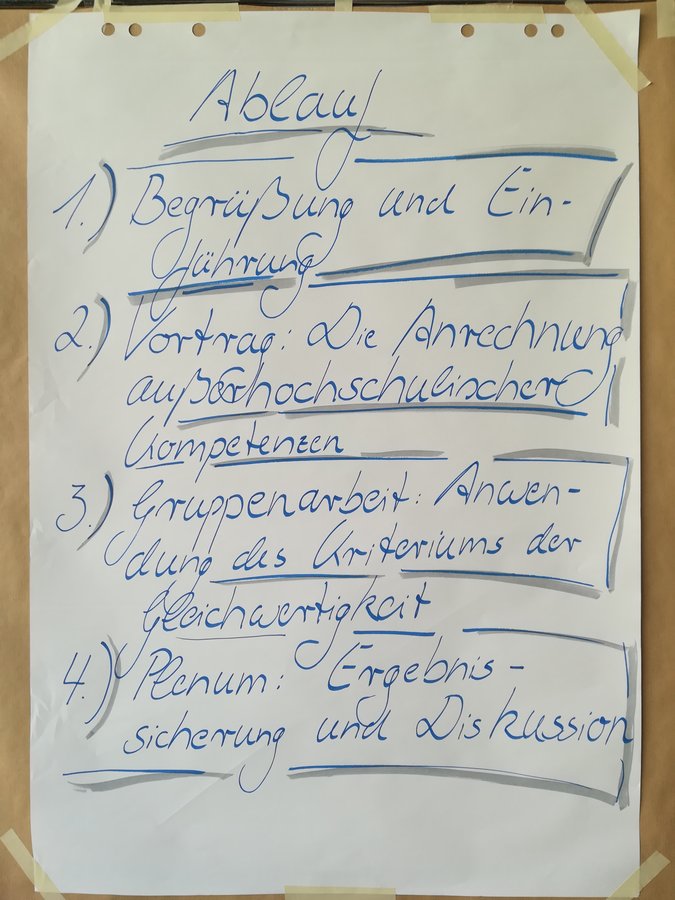 Ablauf
1.) Begrüßung und Ein-
führung
2.) Vortrag: Die Anrechnung
außerhochschulischer
Kompetenzen
3.) Gruppenarbeit: Anwen-
dung des Kriteriums der
Gleichwertigkeit
4.) Plenum: Ergebnis-
sicherung und Diskussion